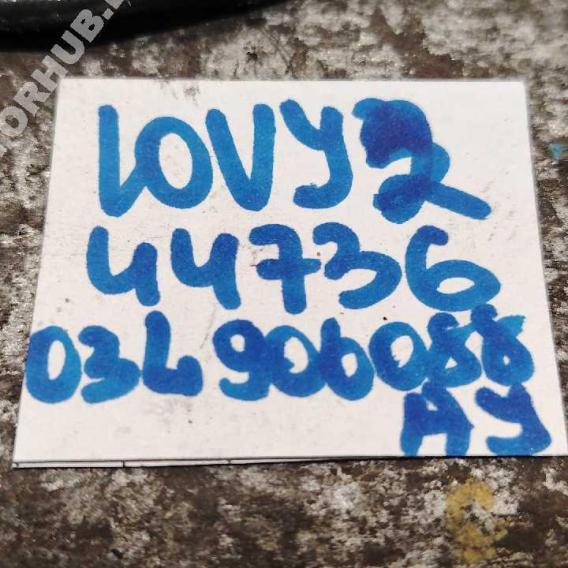 ORHUB.
LOVY2
44736
03L906088
AY